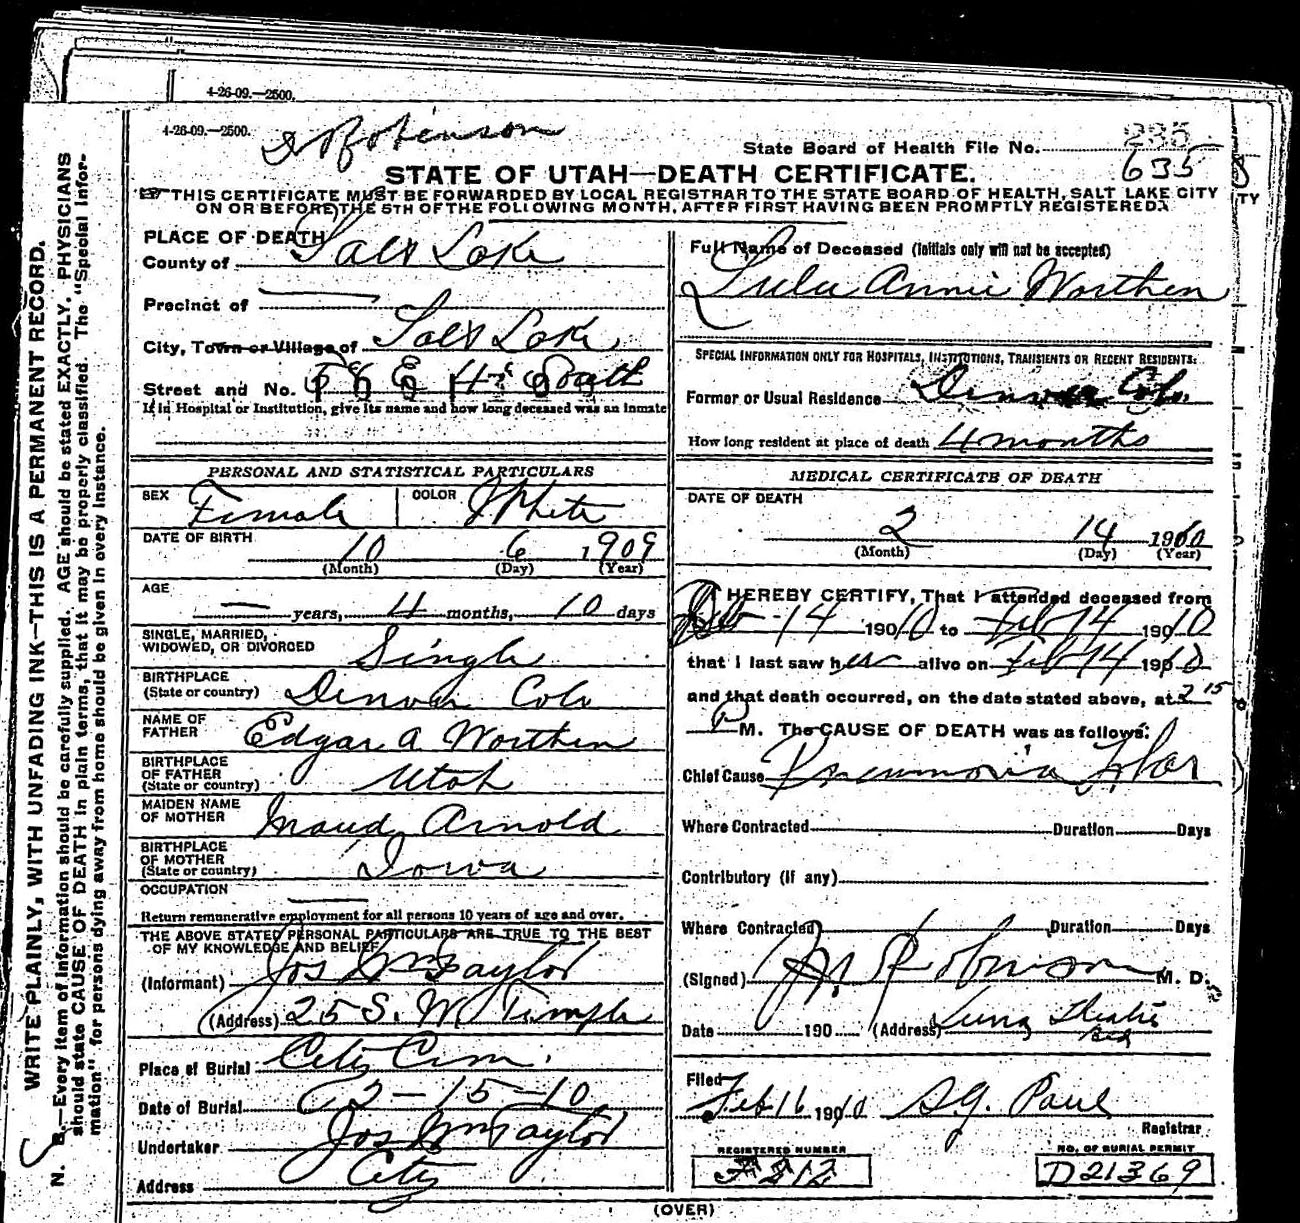 4-26-09.—2500.
4-26-09.—2500.
Robinson
State Board of Health File No. 235
635
STATE OF UTAH—DEATH CERTIFICATE.
THIS CERTIFICATE MUST BE FORWARDED BY LOCAL REGISTRAR TO THE STATE BOARD OF HEALTH, SALT LAKE CITY
TY
ON OR BEFORE THE 5TH OF THE FOLLOWING MONTH, AFTER FIRST HAVING BEEN PROMPTLY REGISTERED.
WRITE PLAINLY, WITH UNFADING INK—THIS IS A PERMANENT RECORD.
N. B.—Every item of information should be carefully supplied. AGE should be stated EXACTLY. PHYSICIANS
should state CAUSE OF DEATH in plain terms, that it may be properly classified. The "Special Infor-
mation" for persons dying away from home should be given in every instance.
PLACE OF DEATH
County of Salt Lake
Precinct of —
City, Town or Village of Salt Lake
Street and No. 4th South
If in Hospital or Institution, give its name and how long deceased was an inmate
PERSONAL AND STATISTICAL PARTICULARS
SEX Female COLOR White
DATE OF BIRTH
10 6 1909
(Month) (Day) (Year)
AGE
— years, 4 months, 10 days
SINGLE, MARRIED,
WIDOWED, OR DIVORCED Single
BIRTHPLACE
(State or country) Denver Colo
NAME OF
FATHER Edgar A Worthen
BIRTHPLACE
OF FATHER
(State or country) Utah
MAIDEN NAME
OF MOTHER Maud Arnold
BIRTHPLACE
OF MOTHER
(State or country) Iowa
OCCUPATION —
Return remunerative employment for all persons 10 years of age and over.
THE ABOVE STATED PERSONAL PARTICULARS ARE TRUE TO THE BEST
OF MY KNOWLEDGE AND BELIEF
(Informant) Jos Wm Taylor
(Address) 25 S. W Temple
Place of Burial City Cem.
Date of Burial 2-15-10
Undertaker Jos Wm Taylor
Address City
Full Name of Deceased (Initials only will not be accepted)
Lula Annie Worthen
SPECIAL INFORMATION ONLY FOR HOSPITALS, INSTITUTIONS, TRANSIENTS OR RECENT RESIDENTS:
Former or Usual Residence Denver Colo.
How long resident at place of death 4 months
MEDICAL CERTIFICATE OF DEATH
DATE OF DEATH
2 14 1910
(Month) (Day) (Year)
I HEREBY CERTIFY, That I attended deceased from
Feb 14 190 10 to Feb 14 190 10
that I last saw her alive on Feb 14 1910
and that death occurred, on the date stated above, at 2 15
P M. The CAUSE OF DEATH was as follows:
Chief Cause Pneumonia Lobar
Where Contracted Duration Days
Contributory (if any)
Where Contracted Duration Days
(Signed) Robinson M. D.
Date 190 (Address)
Filed
Feb 16 1910 S.G. Paul
Registrar
REGISTERED NUMBER
NO. OF BURIAL PERMIT
D21369
(OVER)